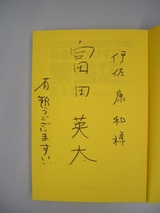 伊佐 康和様
富田 英太
有難うございます!!